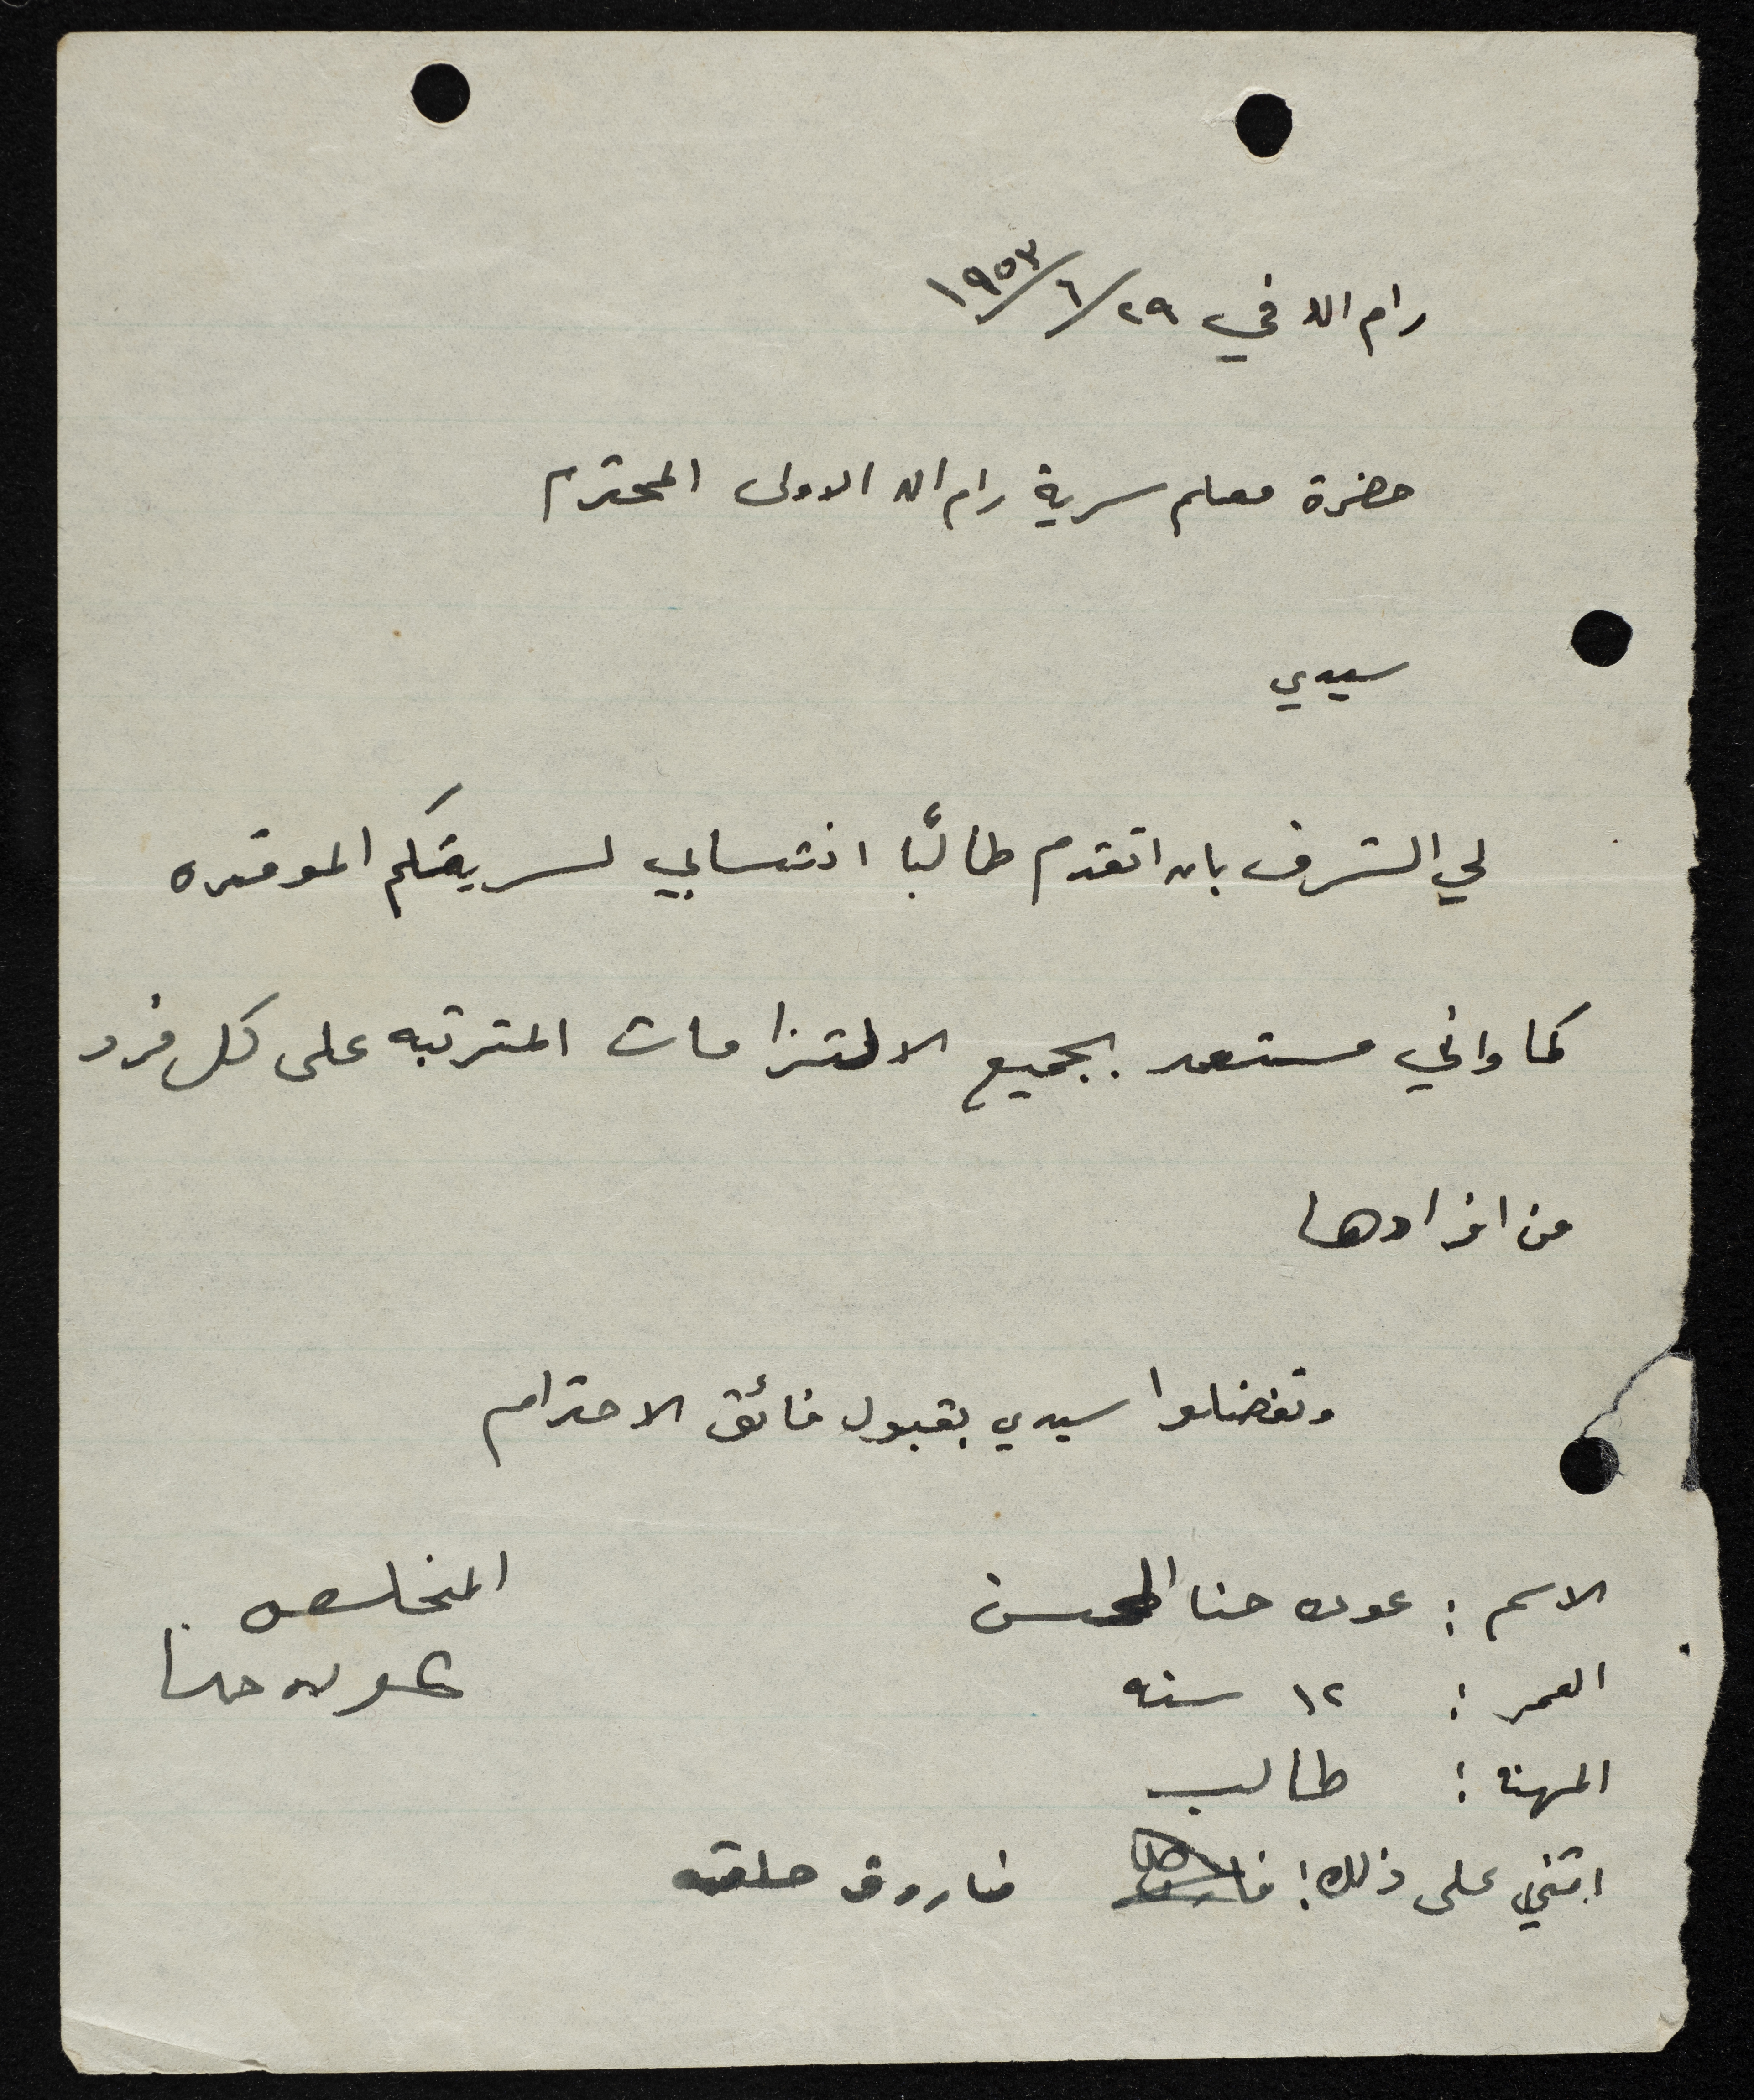 رام الله في ٢٩/٦/١٩٥٣
حضرة معلم سرية رام الله الاولى المحترم
سيدي
لي الشرف بان اتقدم طالبًا انتسابي لسريتكم الموقره
كما واني مستعد بجميع الالتزامات المترتبه على كل فرد
من افرادها
وتفضلوا سيدي بقبول فائق الاحترام
الاسم : عوده حنا
المخلص
عوده حنا
العمر : ١٢ سنه
المهنه : طالب
اثني على ذلك : فاروق حلقه